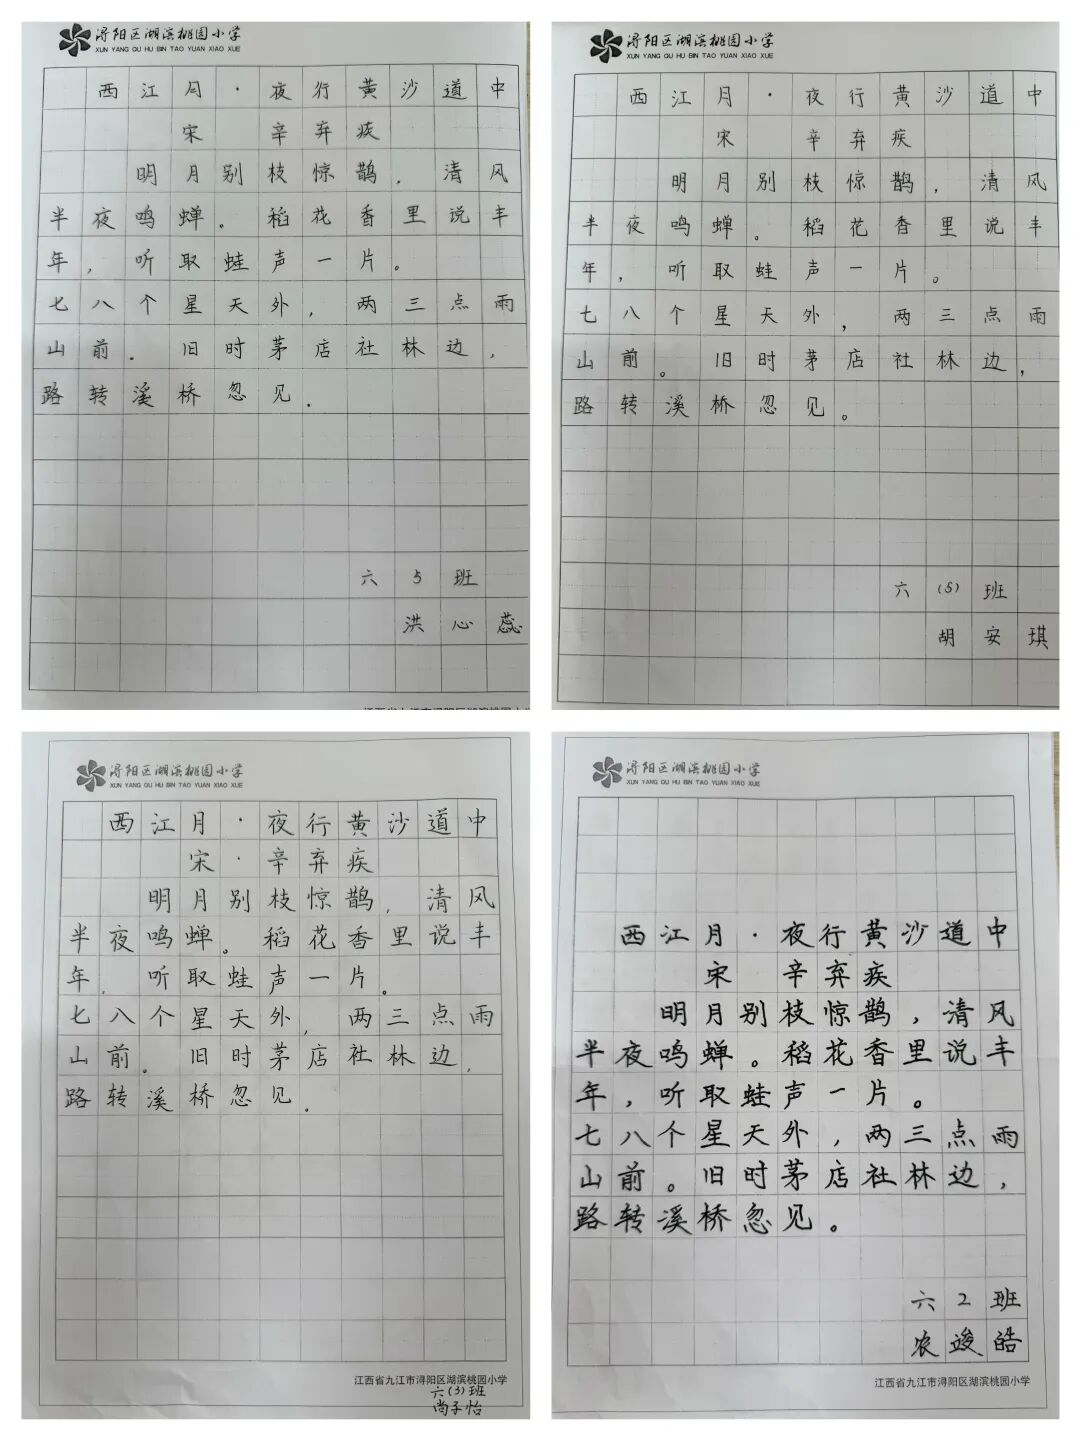 浔阳区湖滨桃园小学
XUN YANG QU HU BIN TAO YUAN XIAO XUE
西江月·夜行黄沙道中
宋 辛弃疾
明月别枝惊鹊，清风
半夜鸣蝉。稻花香里说丰
年，听取蛙声一片。
七八个星天外，两三点雨
山前。旧时茅店社林边，
路转溪桥忽见.
六5班
洪心蕊
江西省九江市浔阳区湖滨桃园小学
浔阳区湖滨桃园小学
XUN YANG QU HU BIN TAO YUAN XIAO XUE
西江月·夜行黄沙道中
宋 辛弃疾
明月别枝惊鹊，清风
半夜鸣蝉。稻花香里说丰
年，听取蛙声一片。
七八个星天外，两三点雨
山前。旧时茅店社林边，
路转溪桥忽见。
六(5)班
胡安琪
浔阳区湖滨桃园小学
XUN YANG QU HU BIN TAO YUAN XIAO XUE
西江月·夜行黄沙道中
宋·辛弃疾
明月别枝惊鹊，清风
半夜鸣蝉。稻花香里说丰
年，听取蛙声一片。
七八个星天外，两三点雨
山前。旧时茅店社林边，
路转溪桥忽见.
江西省九江市浔阳区湖滨桃园小学
六(3)班
尚子怡
浔阳区湖滨桃园小学
XUN YANG QU HU BIN TAO YUAN XIAO XUE
西江月·夜行黄沙道中
宋 辛弃疾
明月别枝惊鹊，清风
半夜鸣蝉。稻花香里说丰
年，听取蛙声一片。
七八个星天外，两三点雨
山前。旧时茅店社林边，
路转溪桥忽见。
六2班
农竣皓
江西省九江市浔阳区湖滨桃园小学